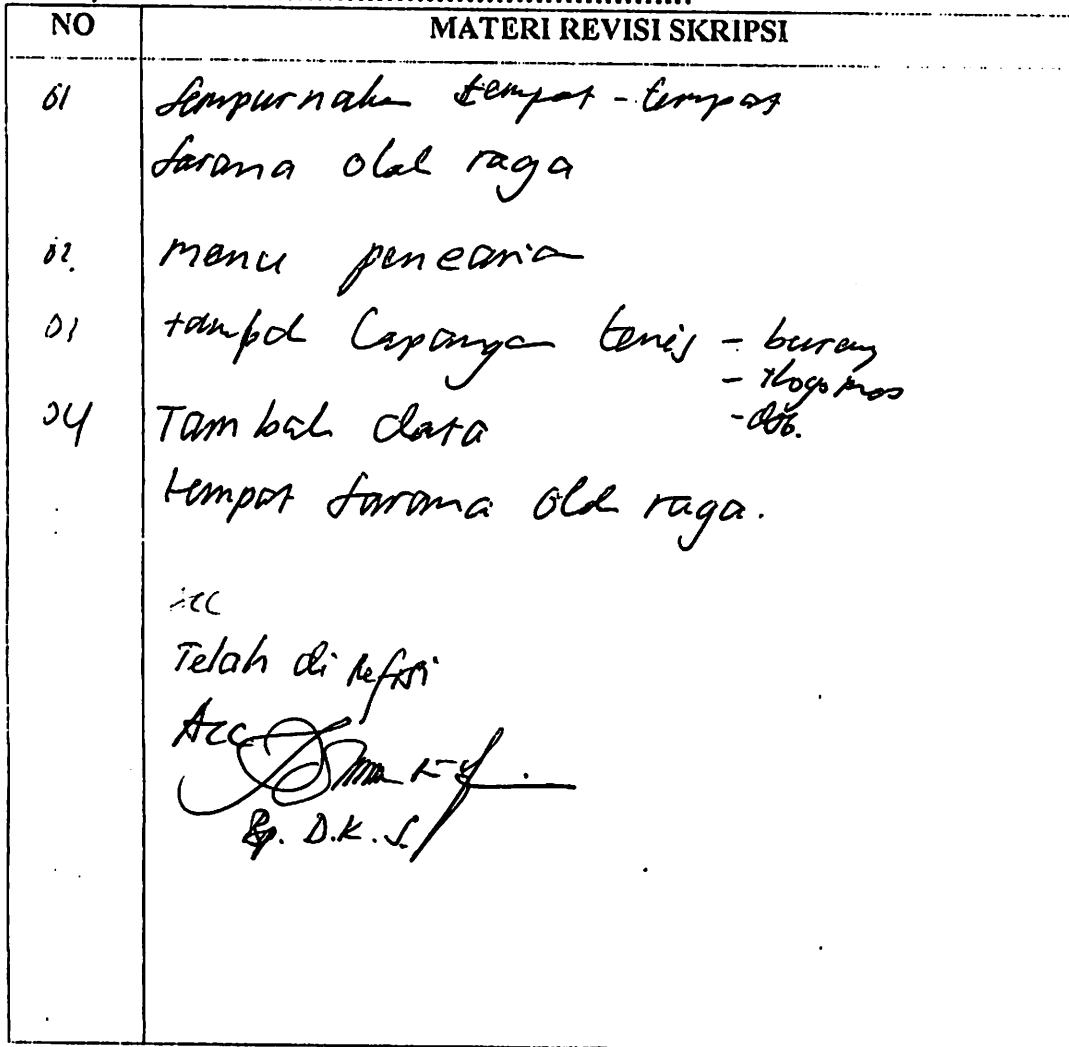 NO MATERI REVISI SKRIPSI
01 Sempurnakan tempat - tempat
sarana olah raga
02. menu pencarian
03 Lapangan tenis - buring
- tlogo mas
- dsb.
04 Tambah data
tempat sarana olah raga.
acc
Telah di Refisi
Acc
Bp. D.K.S.